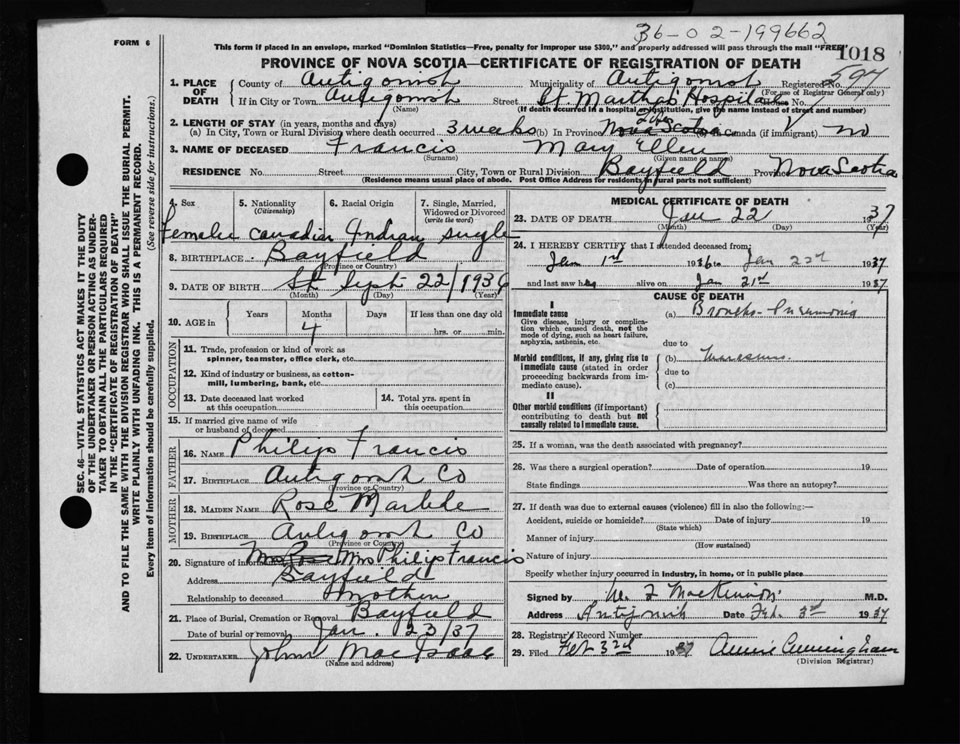 36-02-199662
FORM 6
This form if placed in an envelope, marked "Dominion Statistics—Free, penalty for improper use $300," and properly addressed will pass through the mail "FREE"
1018
PROVINCE OF NOVA SCOTIA—CERTIFICATE OF REGISTRATION OF DEATH
1. PLACE OF DEATH County of Antigonish Municipality of Antigonish Registered No. 597
(For use of Registrar General only)
If in City or Town Antigonish Street St. Martha's Hospital House No.
(Name) (If death occurred in a hospital or institution, give the name instead of street and number)
2. LENGTH OF STAY (in years, months and days)
(a) In City, Town or Rural Division where death occurred 3 weeks (b) In Province Nova Scotia Canada (if immigrant) no
3. NAME OF DECEASED Francis Mary Ellen
(Surname) (Given name or names)
RESIDENCE No. Street City, Town or Rural Division Bayfield Province Nova Scotia
(Residence means usual place of abode. Post Office Address for residents of rural parts not sufficient)
SEC. 46—VITAL STATISTICS ACT MAKES IT THE DUTY
OF THE UNDERTAKER OR PERSON ACTING AS UNDER-
TAKER TO OBTAIN ALL THE PARTICULARS REQUIRED
IN THE "CERTIFICATE OF REGISTRATION OF DEATH"
AND TO FILE THE SAME WITH THE DIVISION REGISTRAR WHO SHALL ISSUE THE BURIAL PERMIT.
WRITE PLAINLY WITH UNFADING INK. THIS IS A PERMANENT RECORD.
Every item of information should be carefully supplied. (See reverse side for instructions.)
4. Sex 5. Nationality (Citizenship) 6. Racial Origin 7. Single, Married, Widowed or Divorced (write the word)
Female Canadian Indian single
8. BIRTHPLACE Bayfield
(Province or Country)
9. DATE OF BIRTH Sept 22/1936
(Month) (Day) (Year)
10. AGE in Years Months Days If less than one day old
4 hrs. or min.
OCCUPATION
11. Trade, profession or kind of work as
spinner, teamster, office clerk, etc.
12. Kind of industry or business, as cotton-
mill, lumbering, bank, etc.
13. Date deceased last worked at this occupation 14. Total yrs. spent in this occupation
15. If married give name of wife
or husband of deceased
FATHER
16. NAME Philip Francis
17. BIRTHPLACE Antigonish Co
(Province or Country)
MOTHER
18. MAIDEN NAME Rose
19. BIRTHPLACE Antigonish Co
(Province or Country)
20. Signature of informant Mrs Philip Francis
Address Bayfield
Relationship to deceased Mother
21. Place of Burial, Cremation or Removal Bayfield
Date of burial or removal Jan. 23/37
22. UNDERTAKER John MacIsaac
(Name and address)
MEDICAL CERTIFICATE OF DEATH
23. DATE OF DEATH Jan 22 1937
(Month) (Day) (Year)
24. I HEREBY CERTIFY that I attended deceased from:
Jan 1st 1936 to Jan 22nd 1937
and last saw her alive on Jan 21st 1937
CAUSE OF DEATH
I
Immediate cause
Give disease, injury or compli-
cation which caused death, not the
mode of dying, such as heart failure,
asphyxia, asthenia, etc.
(a) Broncho-Pneumonia
due to
Morbid conditions, if any, giving rise to
immediate cause (stated in order
proceeding backwards from im-
mediate cause).
(b) Marasmus.
due to
(c)
II
Other morbid conditions (if important)
contributing to death but not
causally related to immediate cause.
25. If a woman, was the death associated with pregnancy?
26. Was there a surgical operation? Date of operation 19
State findings Was there an autopsy?
27. If death was due to external causes (violence) fill in also the following:—
Accident, suicide or homicide? Date of injury 19
(State which)
Manner of injury
(How sustained)
Nature of injury
Specify whether injury occurred in industry, in home, or in public place
Signed by MacKinnon M.D.
Address Antigonish Date Feb. 3rd 1937
28. Registrar's Record Number
29. Filed Feb 3rd 1937 Annie Cunningham
(Division Registrar)